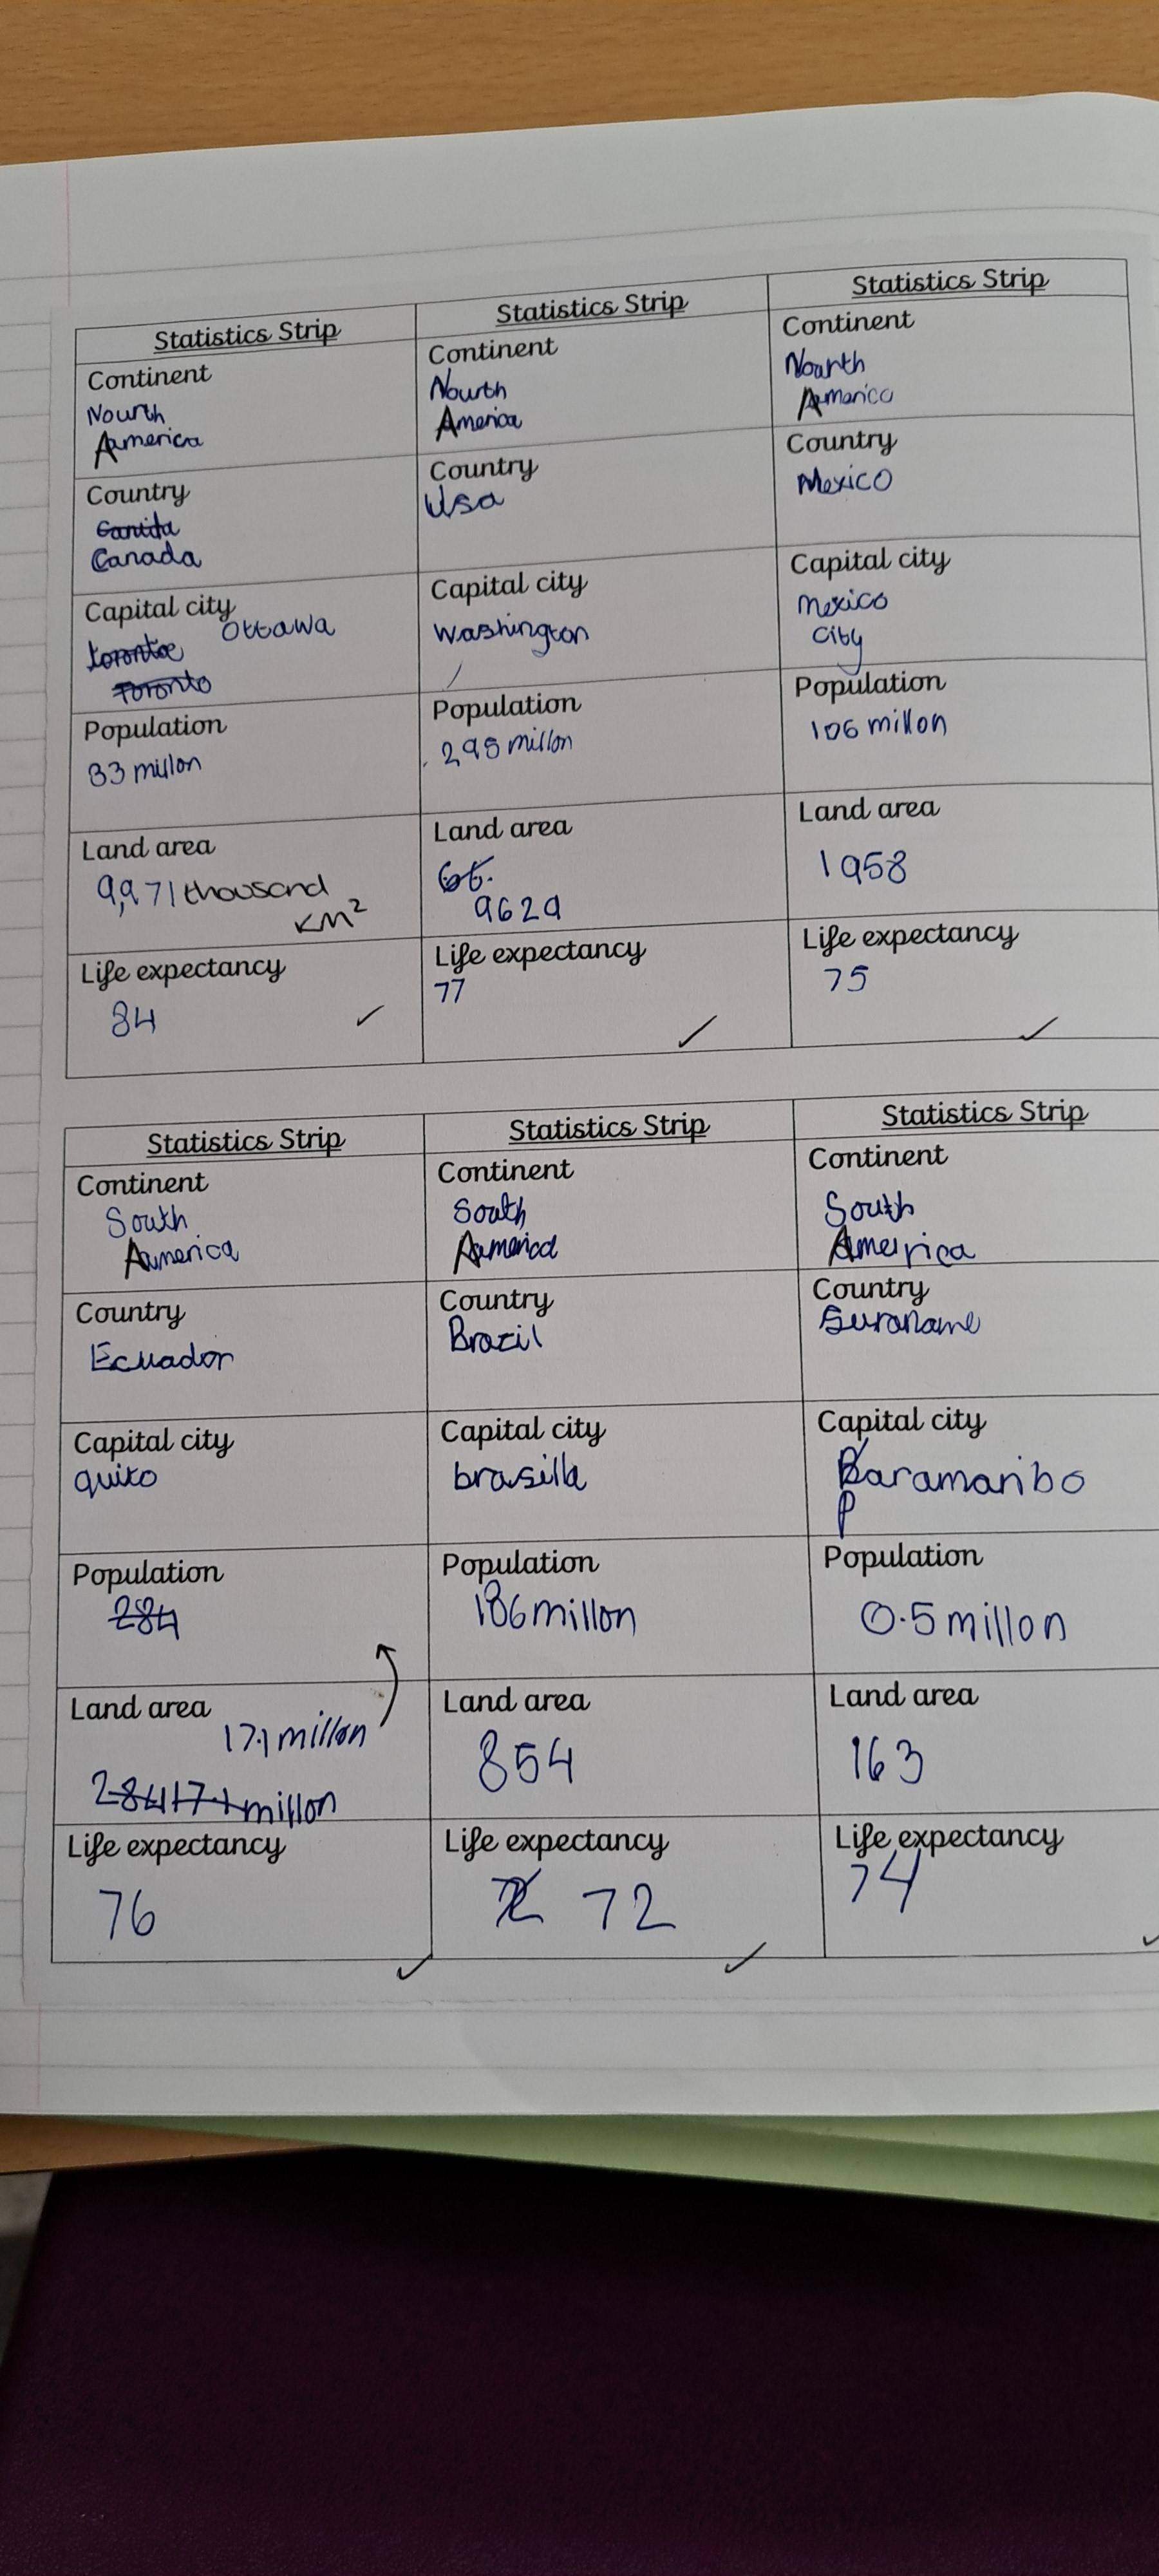 Statistics Strip
Continent
Nourth
America
Country
Canida
Canada
Capital city
Ottawa
toronto
Toronto
Population
33 millon
Land area
9,971 thousand
KM²
Life expectancy
84
Statistics Strip
Continent
Nourth
America
Country
Usa
Capital city
Washington
Population
298 millon
Land area
9629
Life expectancy
77
Statistics Strip
Continent
Nourth
America
Country
Mexico
Capital city
Mexico
City
Population
106 millon
Land area
1958
Life expectancy
75
Statistics Strip
Continent
South
America
Country
Ecuador
Capital city
quito
Population
284
Land area
17.1 millon
28417.1 millon
Life expectancy
76
Statistics Strip
Continent
South
America
Country
Brazil
Capital city
brasilla
Population
186 millon
Land area
854
Life expectancy
72
Statistics Strip
Continent
South
America
Country
Suraname
Capital city
Paramaribo
P
Population
0.5 millon
Land area
163
Life expectancy
74